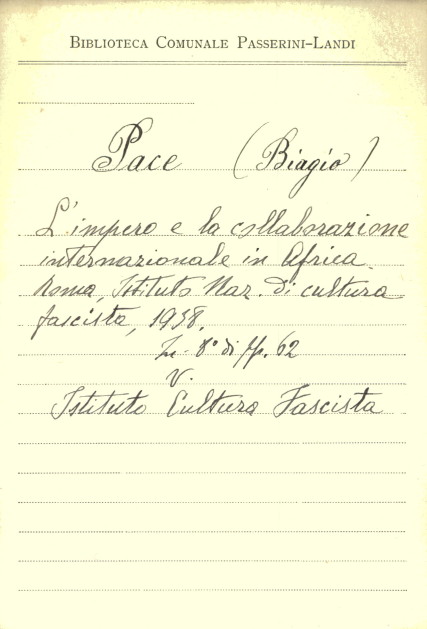 BIBLIOTECA COMUNALE PASSERINI-LANDI
Pace (Biagio)
L'impero e la collaborazione
internazionale in Africa.
Roma, Istituto Naz. di cultura
fascista, 1938.
In-8° di pp. 62
V.
Istituto Cultura Fascista